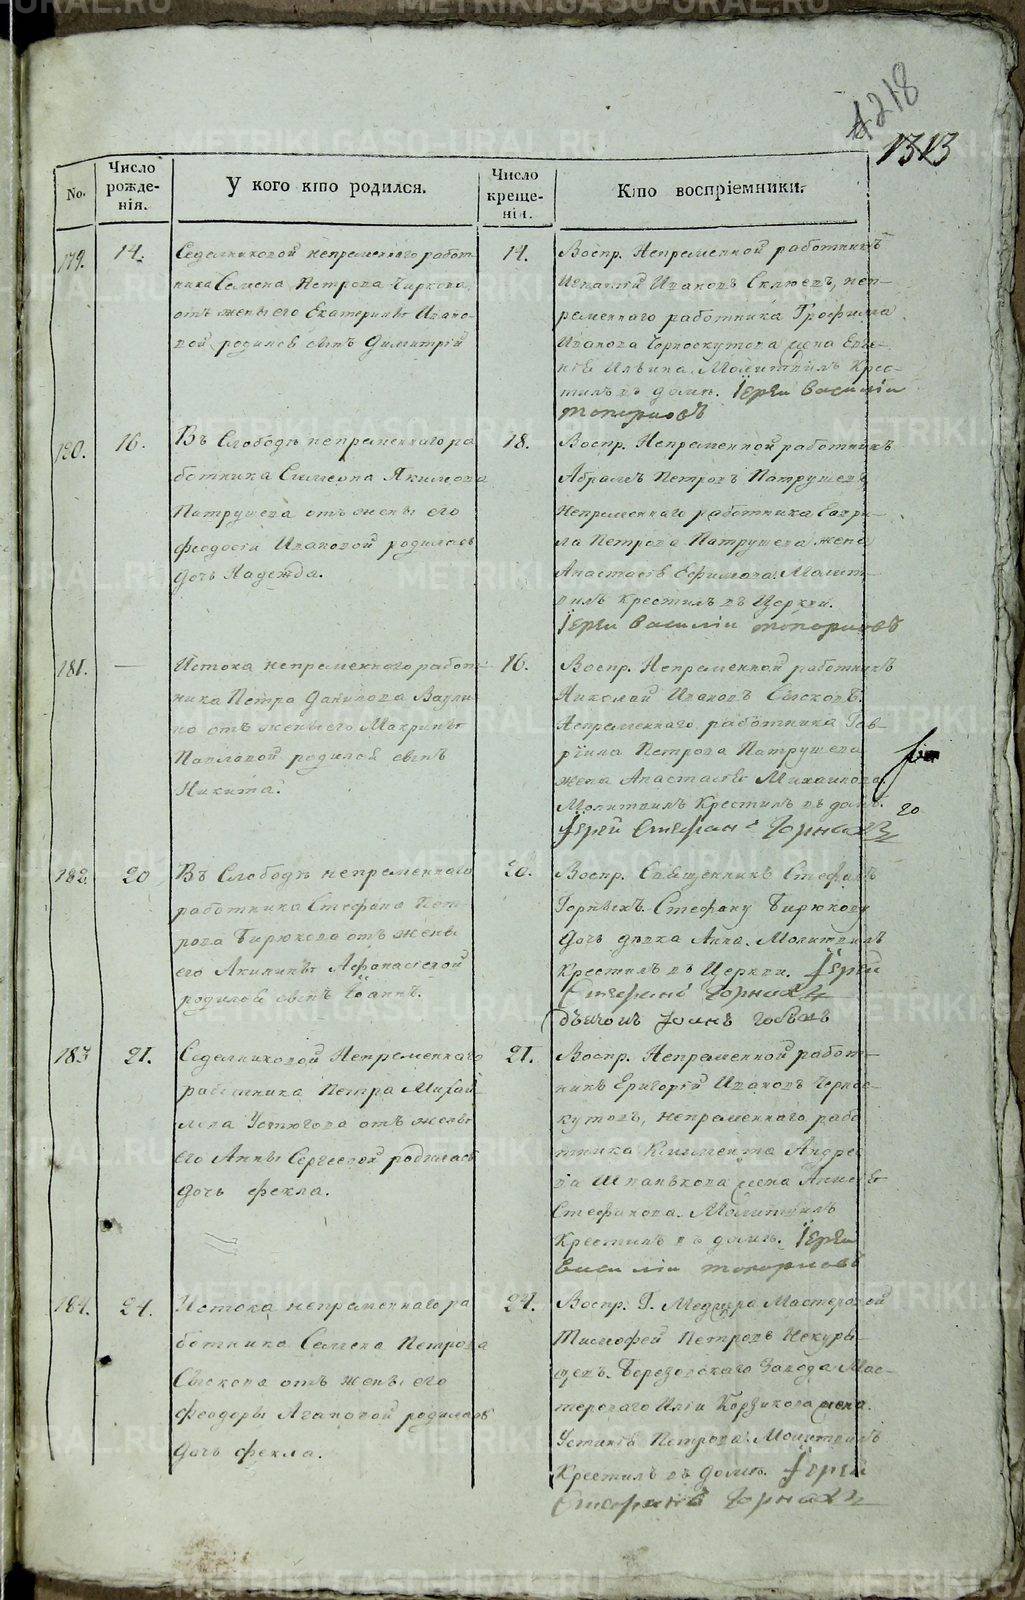 4218
1313
No.
Число рожде-нія.
У кого кто родился.
Число креще-нія.
Кто воспріемники.
179.
14.
Седелниковой непременнаго работ-
ника Семена Петрова Чиркова,
отъ жены его Екатерины Ивано-
вой родился сынъ Димитрій
14.
Воспр. Непременной работникъ
Игнатій Ивановъ, неп-
ременнаго работника Трофима
Иванова Черноскутова жена Евге-
нія Ильина. Молитвилъ Крес-
тилъ въ доме. Іерей Василій
Топорковъ
180.
16.
Въ Слободе непременнаго ра
ботника Симеона Якимова
Патрушева отъ жены его
Феодосіи Ивановой родилась
Дочь Надежда.
18.
Воспр. Непременной работникъ
Абрамъ Петровъ Патрушевъ
Непременнаго работника Гаври-
ла Петрова Патрушева жена
Анастасія Ефимова. Молит-
вилъ Крестилъ въ Церкви.
Іерей Василій Топорковъ
181.
—
Истока непременнаго работ-
ника Петра Данилова Ваули-
на отъ жены его Макрины
Павловой родился сынъ
Никита.
16.
Воспр. Непременной работникъ
Николай Ивановъ Сысковъ.
Непременнаго работника Гав-
рїила Петрова Патрушева
жена Анастасія Михаилова.
Молитвилъ Крестилъ въ доме.
Іерей Стефанъ Горныхъ
20
182.
20
Въ Слободе непременнаго
работника Стефана Пет-
рова Бирюкова отъ жены
его Акилины Афонасіевой
родился сынъ Іоаннъ.
20.
Воспр. Священникъ Стефанъ
Горныхъ. Стефану Бирюкову
Дочь девка Анна. Молитвилъ
Крестилъ въ Церкви. Іерей
Стефанъ Горныхъ
Дьячокъ Іоанъ
183
21.
Седелниковой Непременнаго
работника Петра Михай-
лова Устюгова отъ жены
его Анны Сергеевой родилась
дочь Фекла.
21.
Воспр. Непременной работ-
никъ Григорій Ивановъ Черно-
кутовъ, непременнаго рабо
тника Климента Андрее
ва Шпанькова жена
Стефанова. Молитвилъ
Крестилъ въ доме. Іерей
Василій Топорковъ
184.
24.
Истока непременнаго ра
ботника Семена Петрова
Сыскова отъ жены его
Феодоры Агаповой родилась
Дочь Фекла.
24.
Воспр. Г. Медлера Мастеровой
Тимофей Петровъ Некуры-
щевъ. Березовскаго Завода Мас-
тероваго Иліи Корзикова жена.
Устинія Петрова. Молитвилъ
Крестилъ въ доме. Іерей
Стефанъ Горныхъ
METRIKI.GASO-URAL.RU